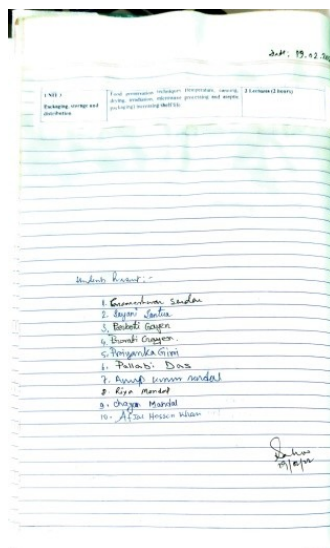 Date: 19.02.
UNIT:
Packaging, storage and distribution
Food preservation techniques (temperature, canning, drying, irradiation, microwave processing and aseptic packaging) increasing shelf life.
2 Lectures (2 hours)
Students Present:-
1. Sardar
2. Sayani Santra
3. Gayen
4. Gayen.
5. Priyanka Giri
6. Pallabi Das
7. Anup
8. Riya Mandal
9. Chayan Mandal
10. Afzal Hossen Khan